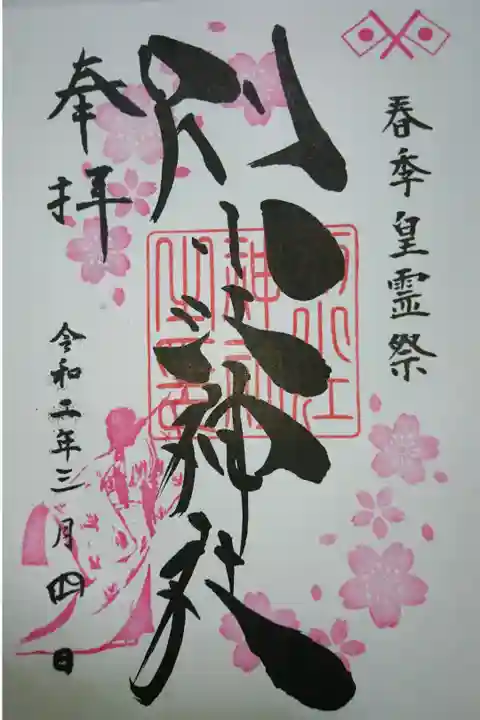 春季皇霊祭
別小江神社
奉拝
令和二年三月四日